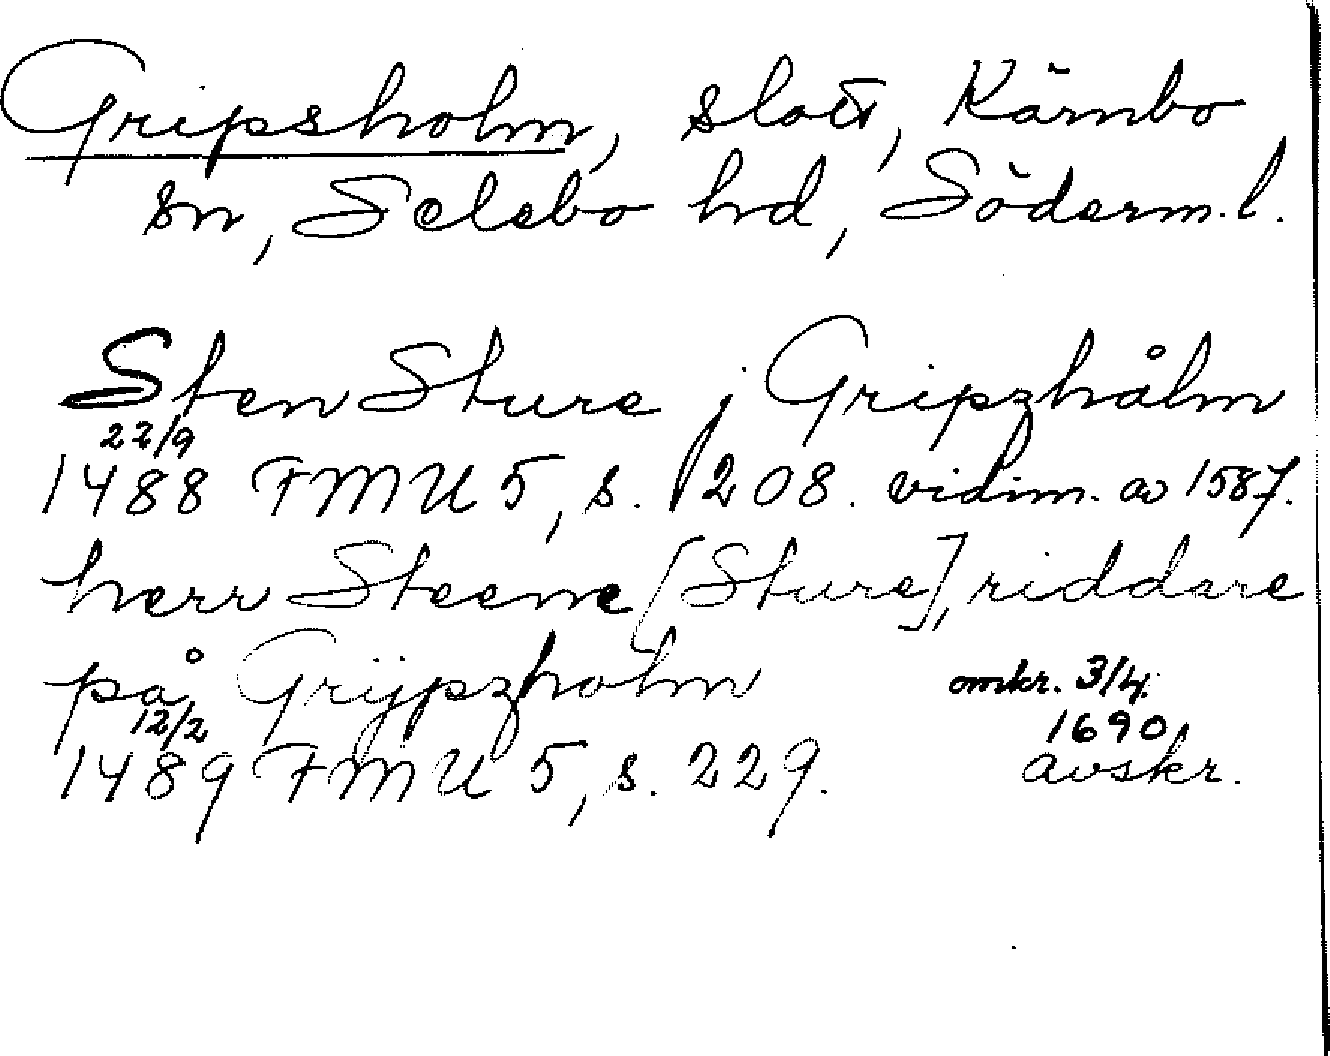 Gripsholm, slott, Kärnbo
sn, Selebo hd, Söderm.l.
Sten Sture j Gripzhålm
22/9
1488 FMU 5, s. 208. vidim. av 1587.
herr Steene [Sture], riddare
på Grijpzholm
omkr. 3/4.
12/2
1690
1489 FMU 5, s. 229.
avskr.